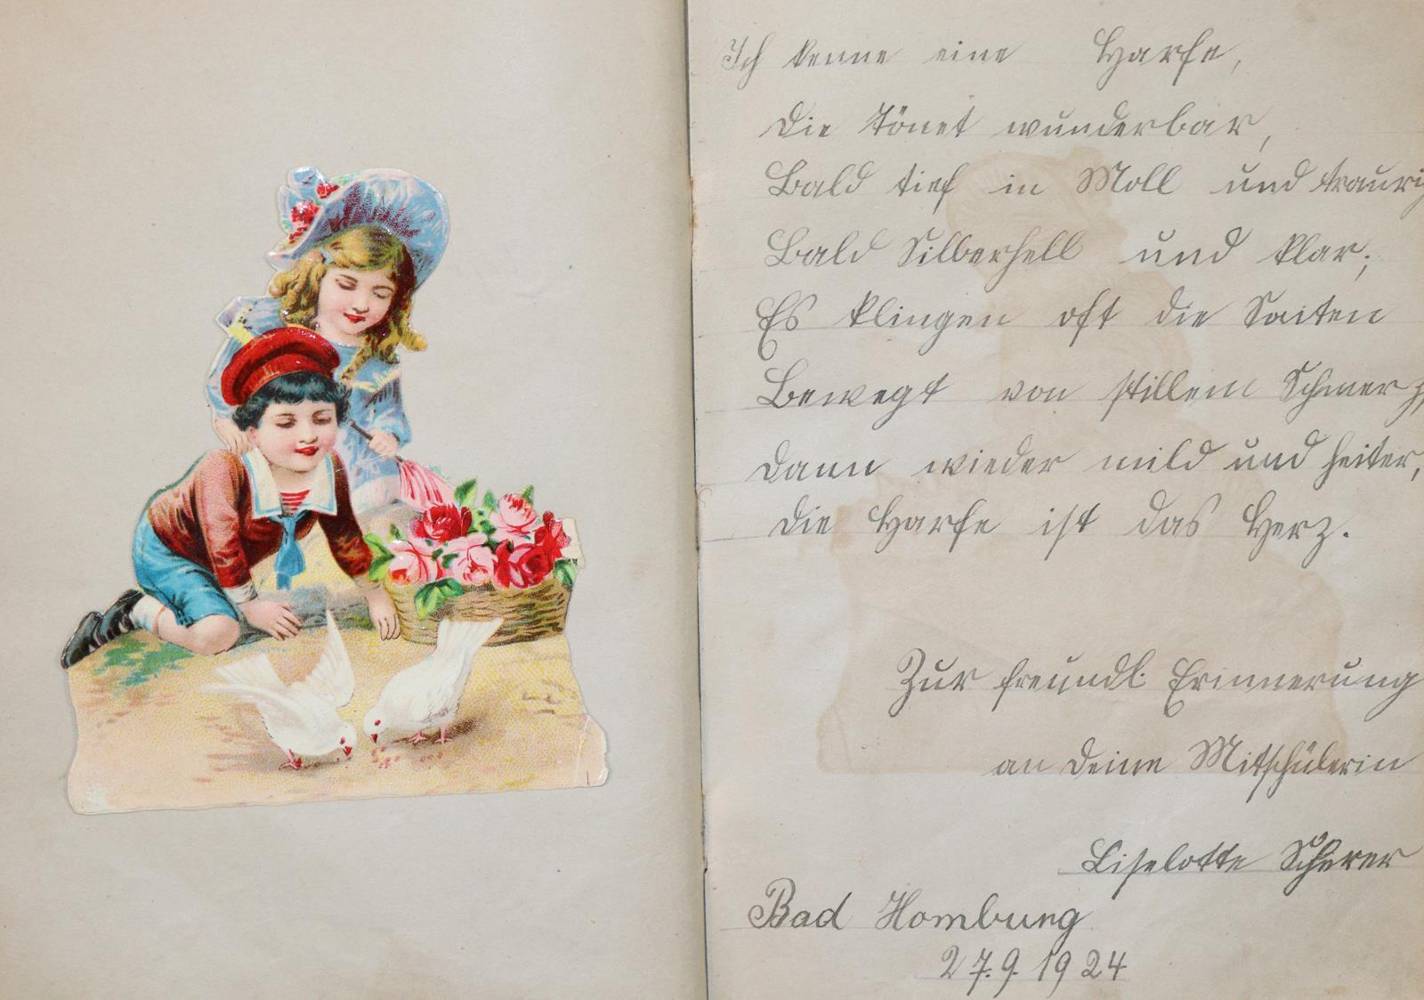 Ich kenne eine Harfe,
Die Tönet wunderbar,
Bald tief in Moll und traurig
Bald Silberhell und klar;
Es klingen oft die Saiten
Bewegt von stillem Schmerz
Dann wieder mild und heiter,
Die Harfe ist das Herz.
Zur freundl. Erinnerung
an Deine Mitschülerin
Liselotte Scherer
Bad Homburg
27.9.1924